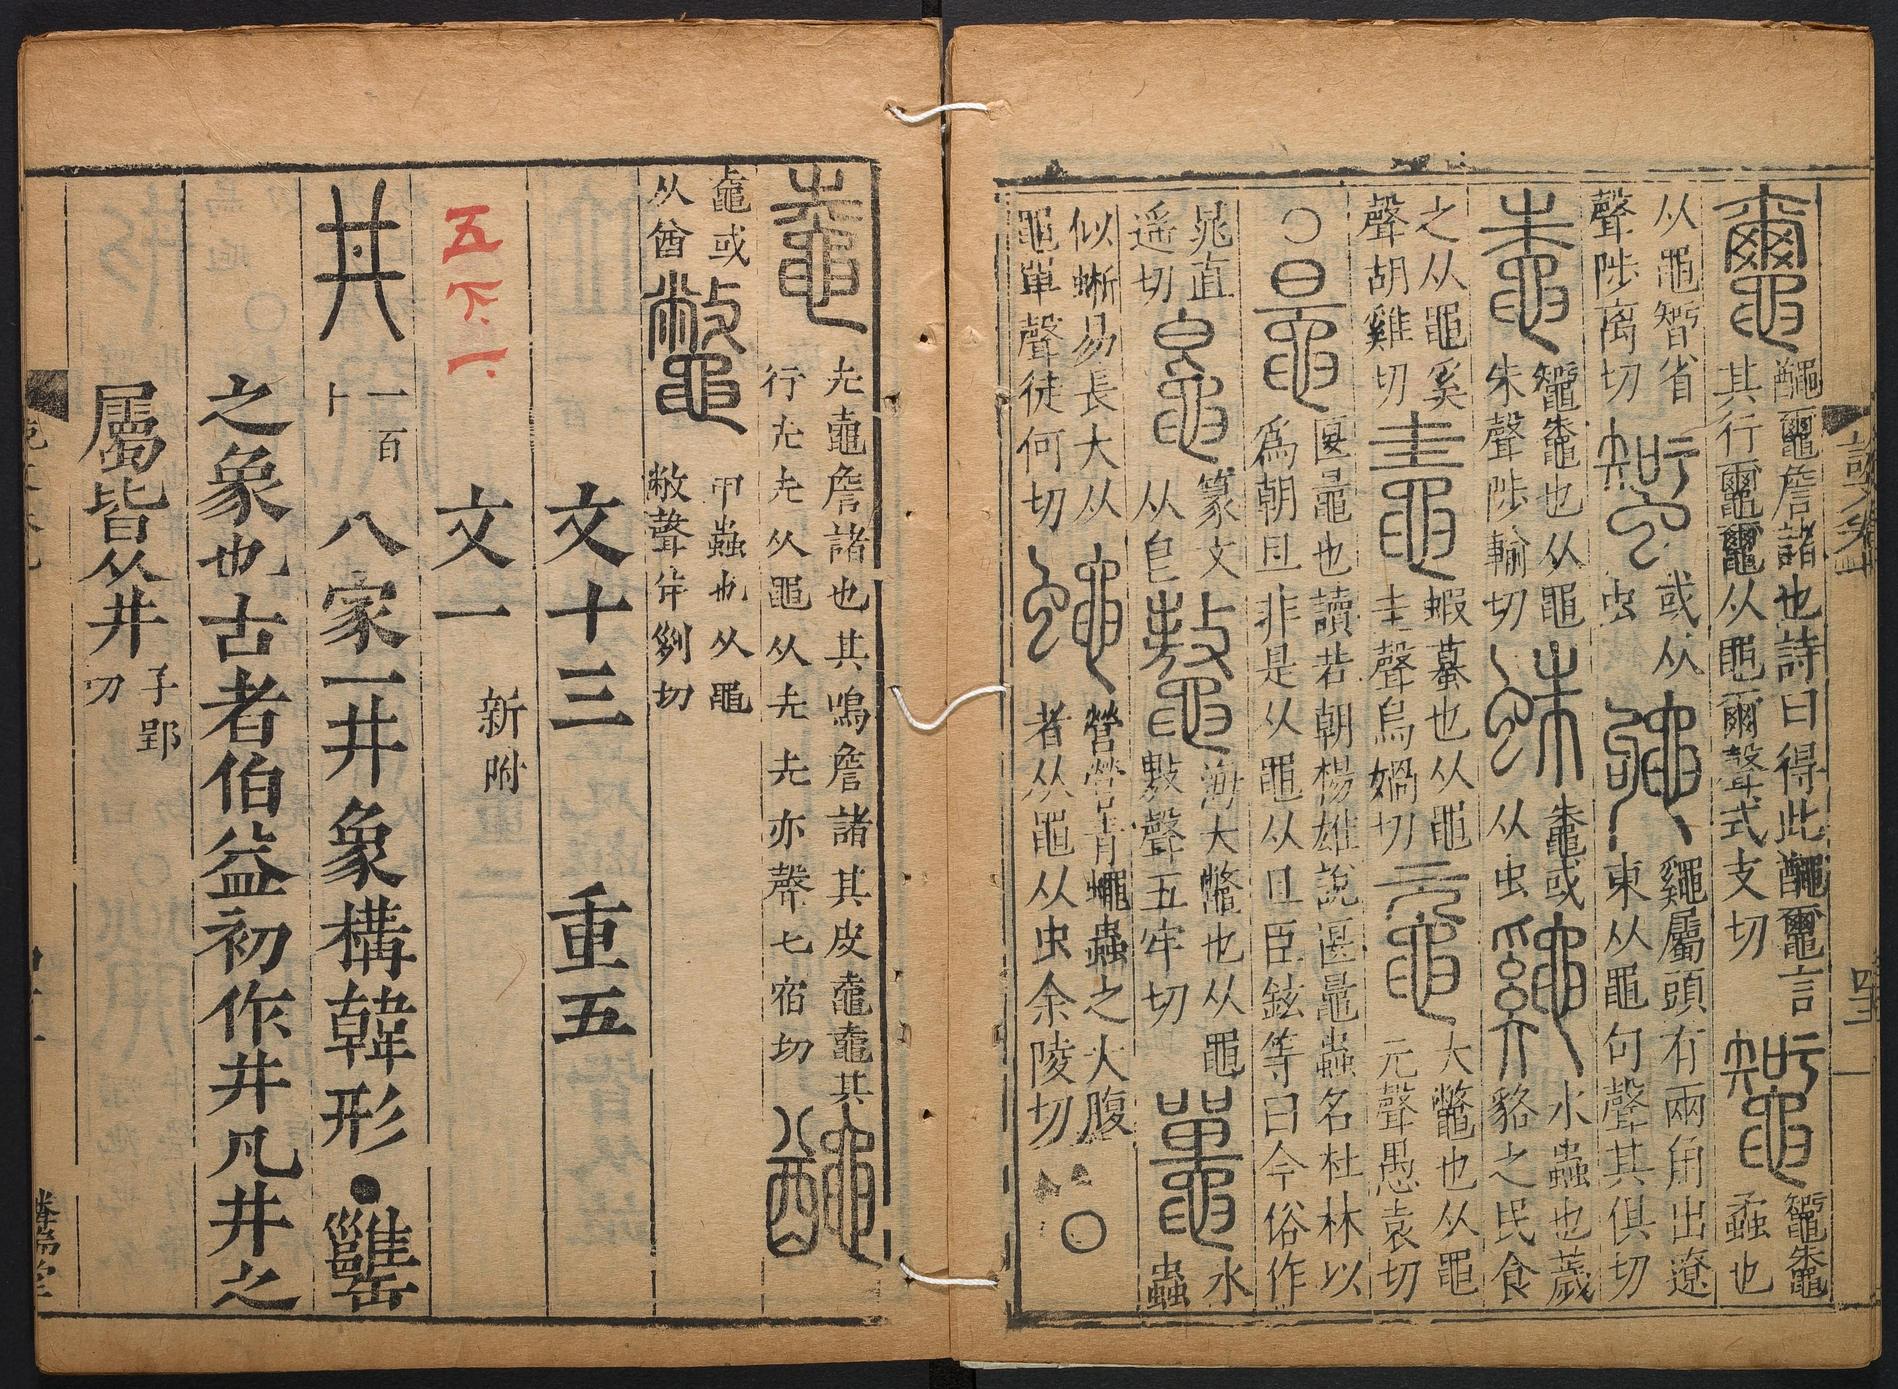 𪓿𪓬𪓿詹諸也詩曰得此𪓬𪓿言其行𪓿𪓿从黽爾聲式支切鼅鼅鼄蟊也
从黽智省聲陟离切蜘或从虫𪓬屬頭有兩角出遼東从黽句聲其俱切
鼄鼅鼄也从黽朱聲陟輸切蛛鼄或从虫水蟲也薉貉之民食
之从黽奚聲胡雞切鼃蝦蟇也从黽圭聲烏媧切黿大鼈也从黽元聲愚袁切
○鼂匽鼂也讀若朝楊雄說匽鼂蟲名杜林以爲朝旦非是从黽从旦臣鉉等曰今俗作
晁直遥切篆文从皀鼇海大鼈也从黽敖聲五牢切鼉水蟲
似蜥易長大从黽單聲徒何切蠅營營青蠅蟲之大腹者从黽从虫余陵切○
鼀圥鼀詹諸也其鳴詹諸其皮鼀鼀其行圥圥从黽从圥圥亦聲七宿切
鼀或从酋鼈甲蟲也从黽敝聲并列切
文十三 重五
文一 新附
五下一
丼 一百 八家一井象構韓形●罋
之象也古者伯益初作井凡井之
屬皆从井子郢切